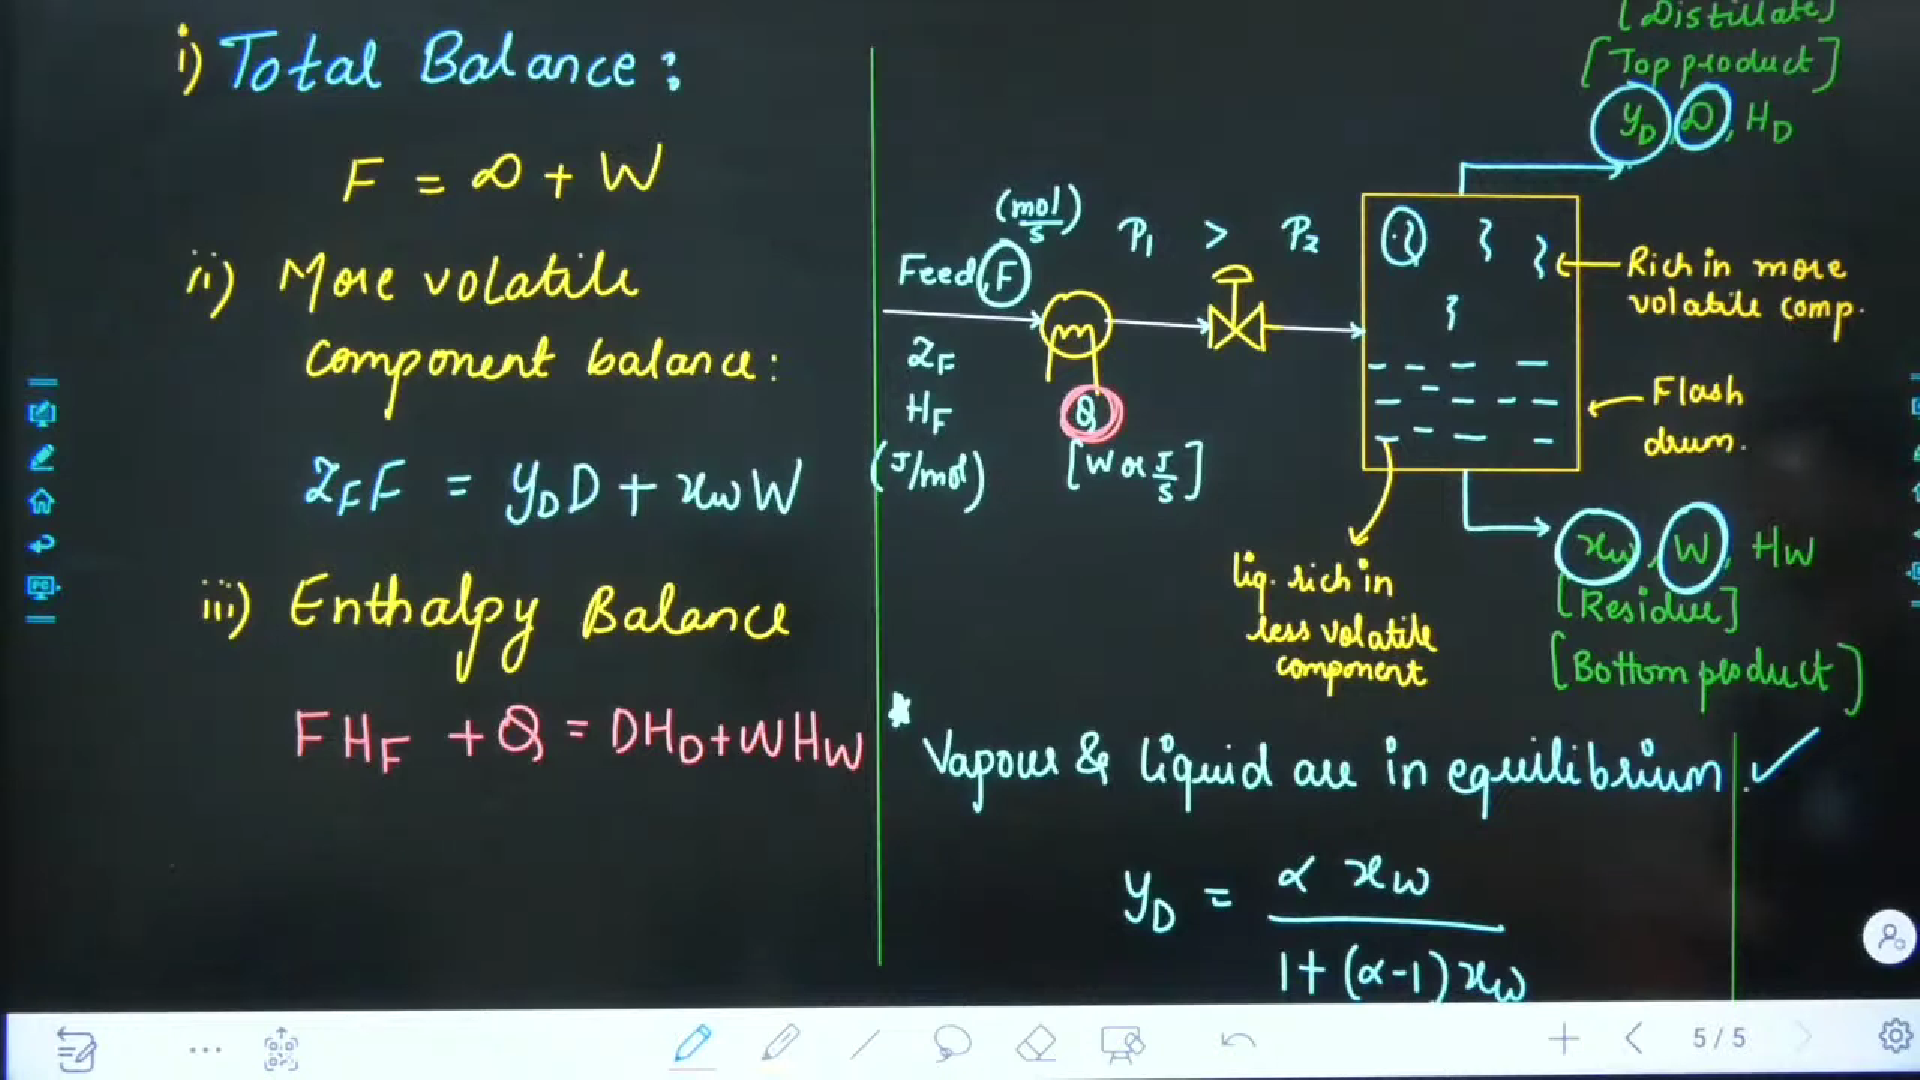 i) Total Balance:
F = D + W
ii) More volatile
component balance:
z_F F = y_D D + x_w W
iii) Enthalpy Balance
F H_F + Q = DH_D + WH_W
[Distillate]
[Top product]
y_D, D, H_D
(mol/s) P₁ > P₂
Feed, F
z_F
H_F
(J/mol)
Q
[W or J/s]
Rich in more
volatile comp.
Flash
drum.
liq. rich in
less volatile
component
x_w, W, H_W
[Residue]
[Bottom product]
* Vapour & liquid are in equilibrium.
y_D = α x_w / 1+(α-1)x_w
5/5